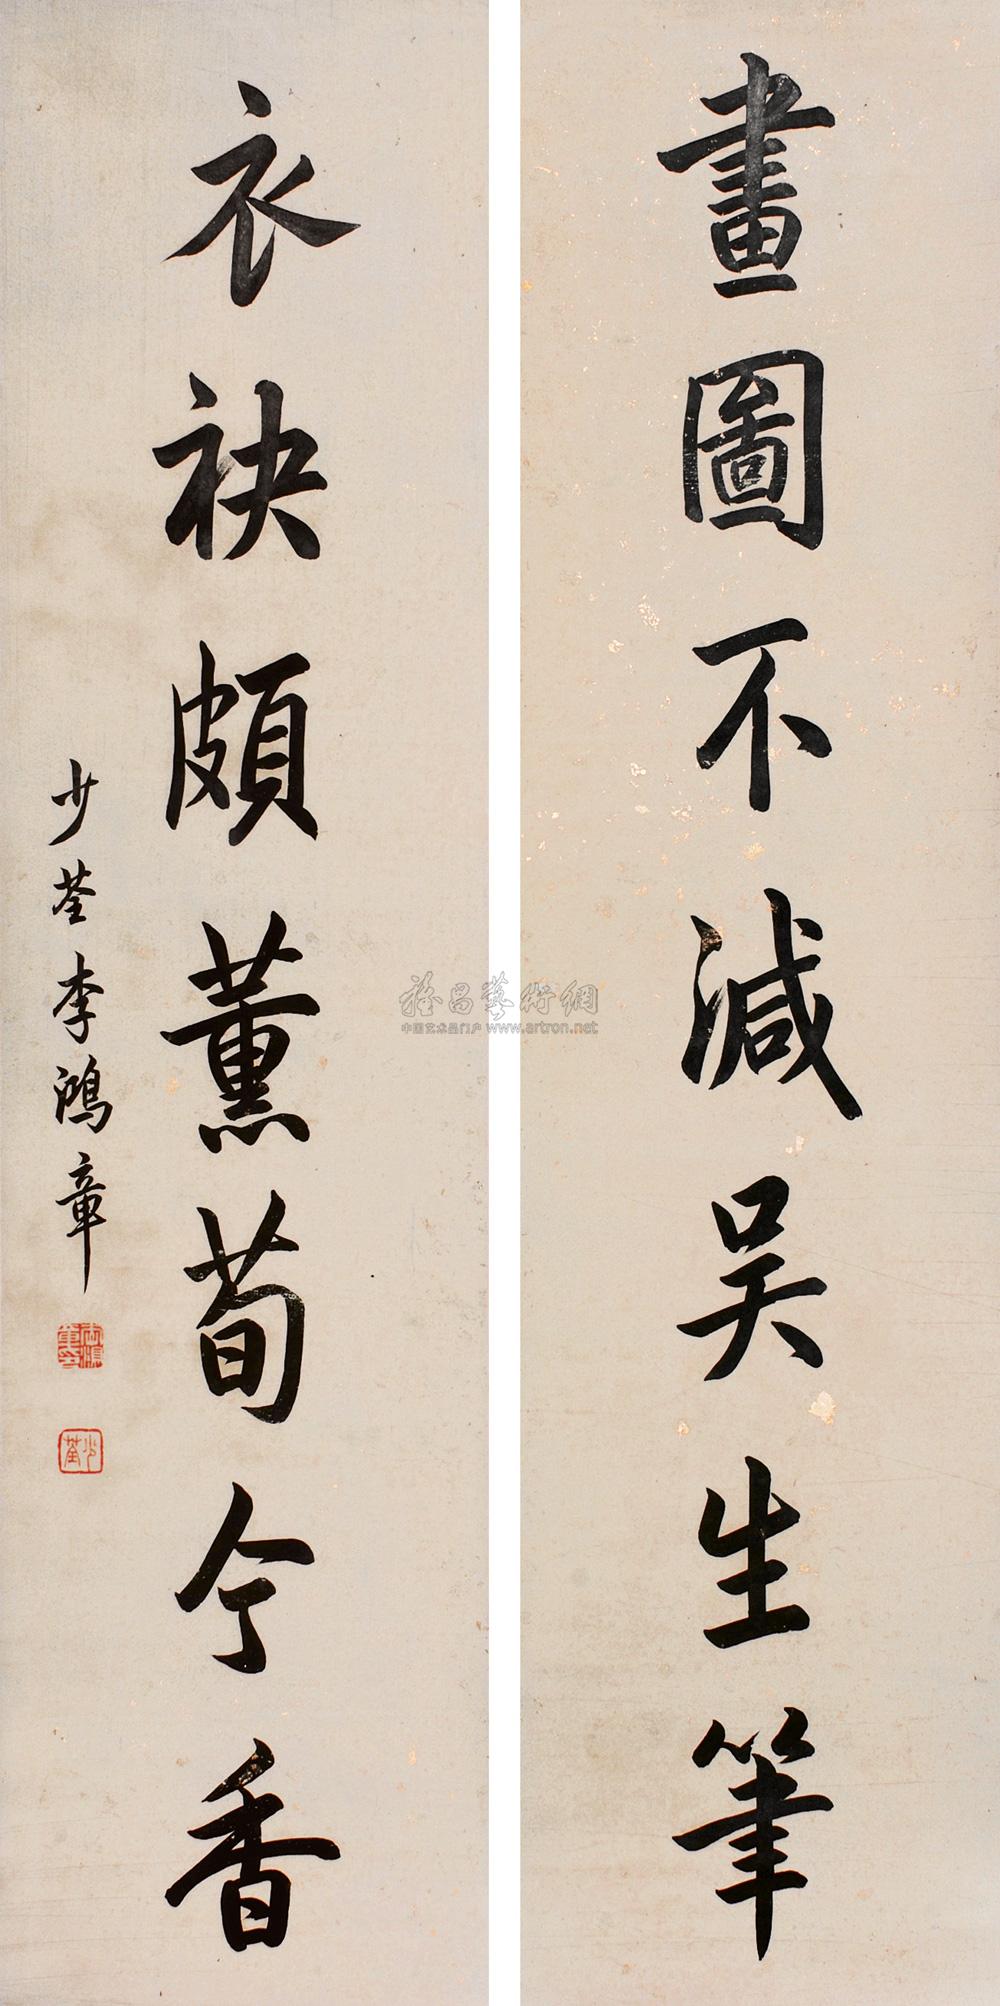 畫圖不減吴生筆
衣袂頗薰荀令香
少荃李鴻章
少荃
雅昌藝術網
中国艺术品门户 www.artron.net